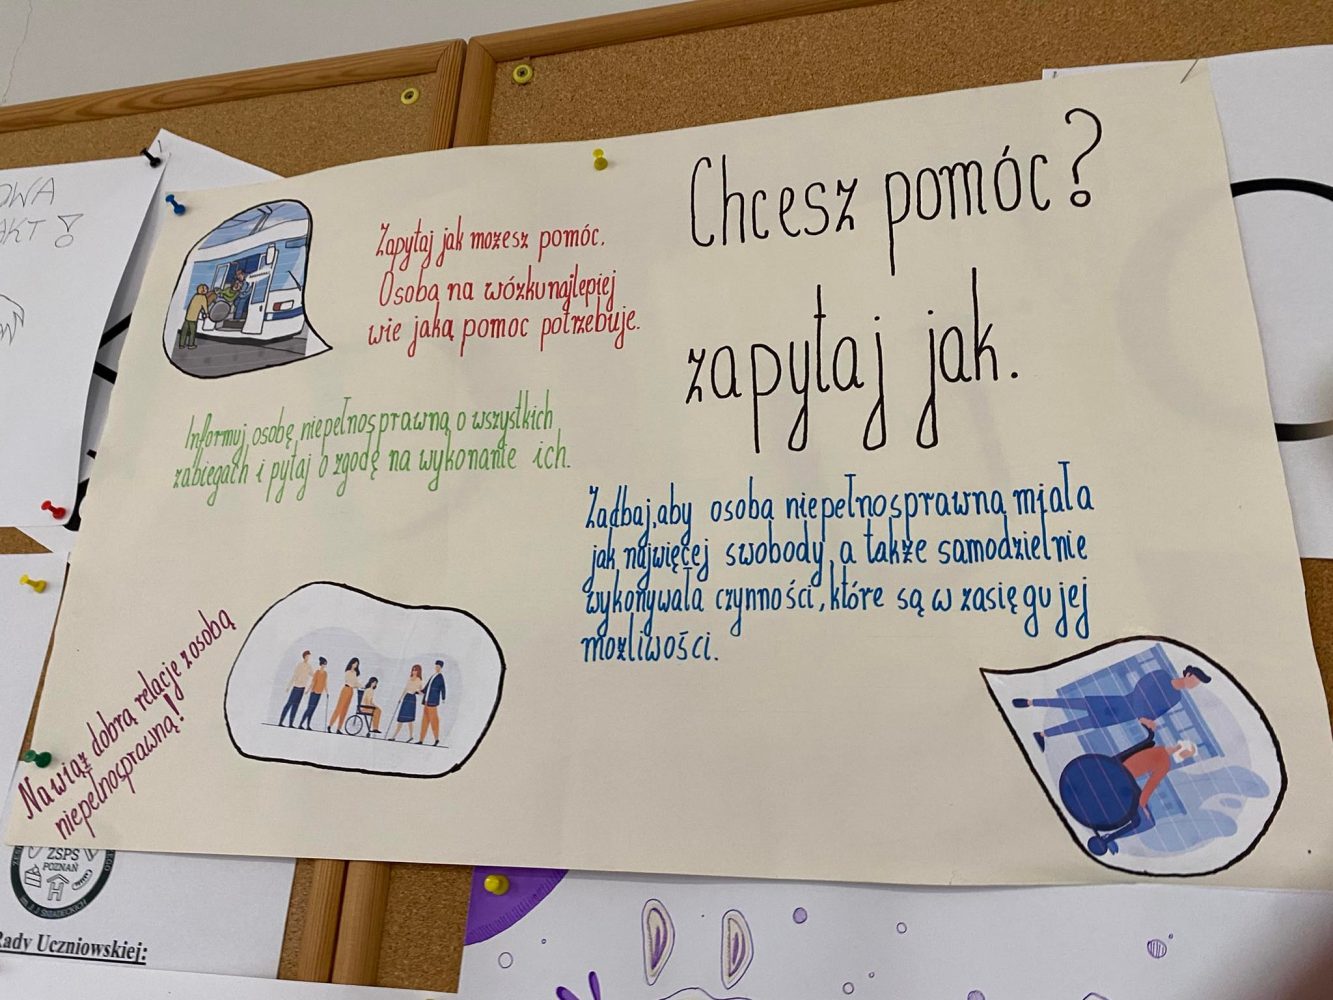 OWA
AKT!
Chcesz pomóc?
zapytaj jak.
Zapytaj jak możesz pomóc.
Osoba na wózku najlepiej
wie jaką pomoc potrzebuje.
Informuj osobę niepełnosprawną o wszystkich
zabiegach i pytaj o zgodę na wykonanie ich.
Zadbaj, aby osoba niepełnosprawna miała
jak najwięcej swobody, a także samodzielnie
wykonywała czynności, które są w zasięgu jej
możliwości.
Nawiąż dobrą relację z osobą
niepełnosprawną!
ZSPS
POZNAŃ
Rady Uczniowskiej: